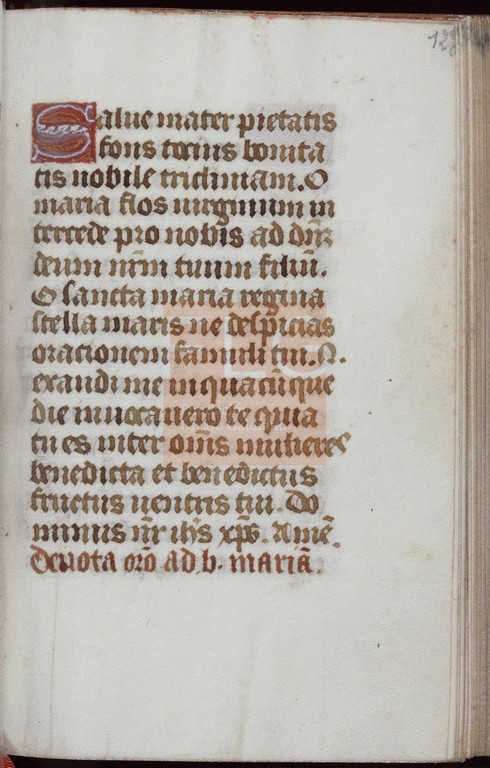 128
Salue mater pietatis
fons tocius bonita
tis nobile triclinium. O
maria flos uirginum in
tercede pro nobis ad dn̄m
deum nr̄m tuum filiū.
O sancta maria regina
stella maris ne despicias
orationem famuli tui. N.
exaudi me in quacūque
die inuocauero te quia
tu es inter om̄s mulieres
benedicta et benedictus
fructus uentris tui. Do
minus nr̄ ih̄s xp̄s. Amē.
Deuota or̄o ad b. mariā.